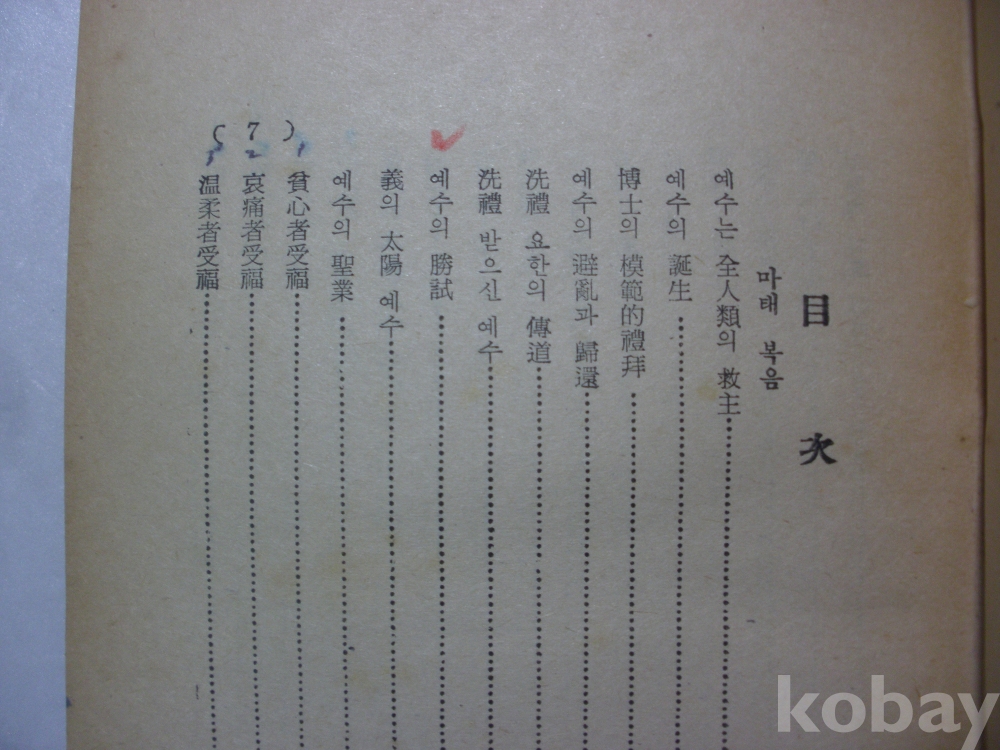 目 次
마태 복음
예수는 全人類의 救主
예수의 誕生
博士의 模範的禮拜
예수의 避亂과 歸還
洗禮 요한의 傳道
洗禮 받으신 예수
예수의 勝試
義의 太陽 예수
예수의 聖業
貧心者受福
哀痛者受福
温柔者受福
( 7 )
1
2
3
kobay